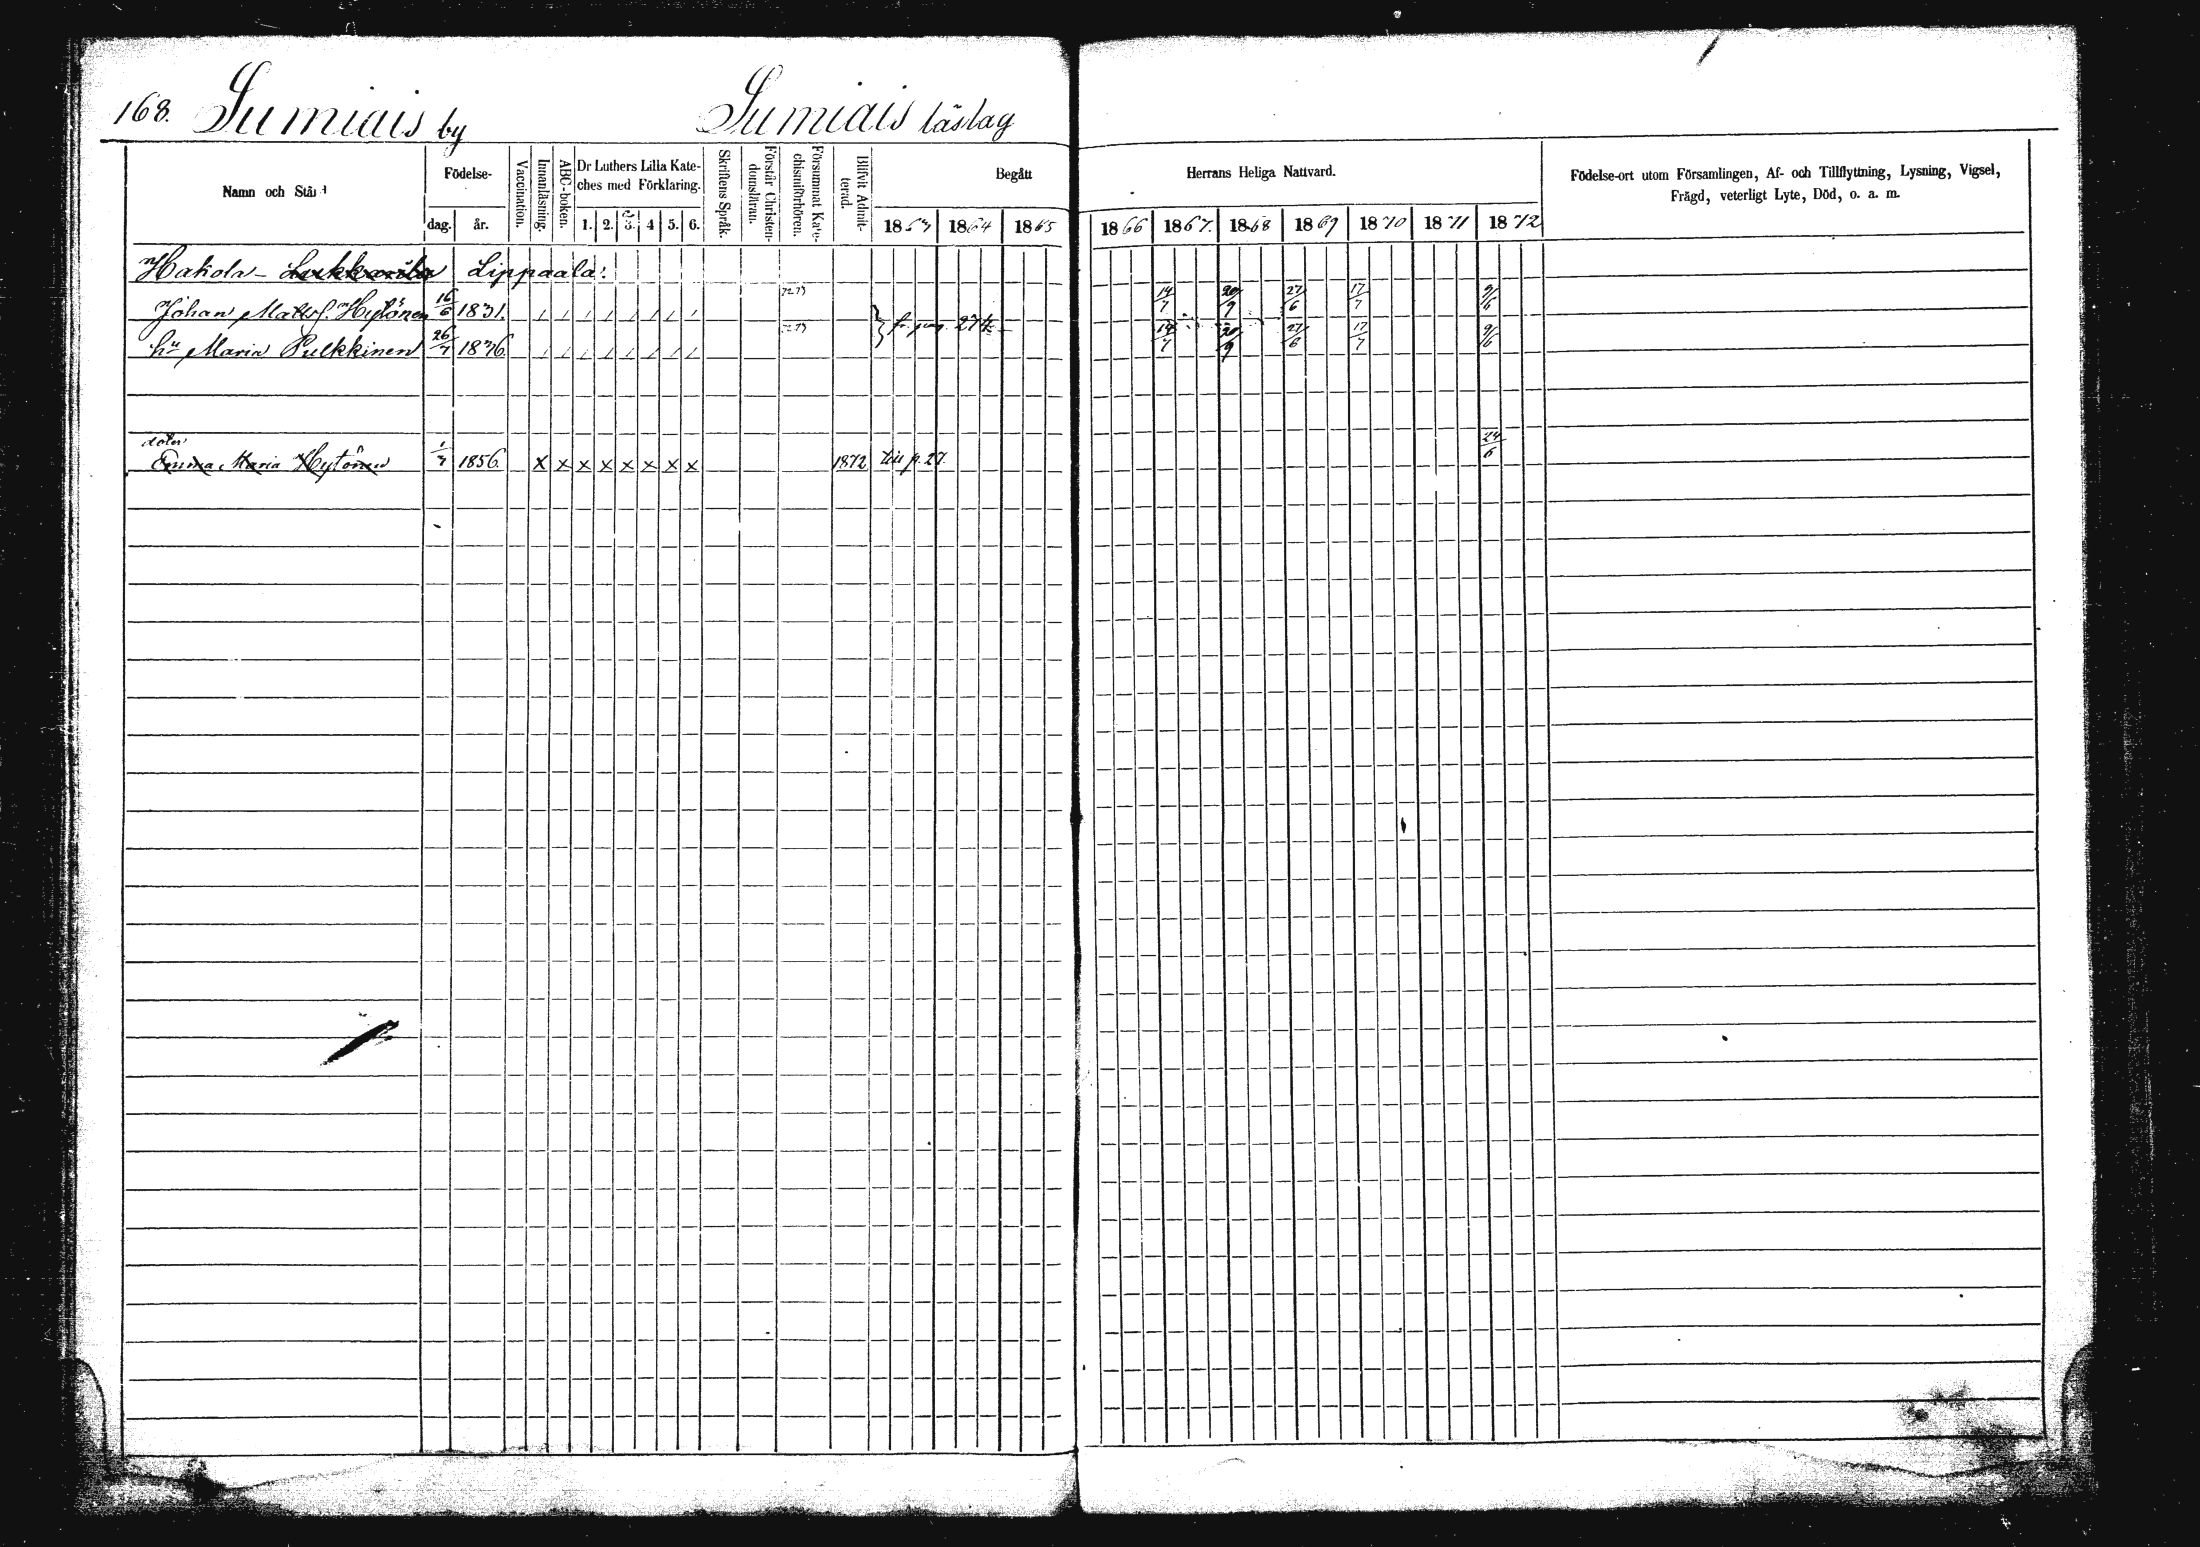 168. Sumiais by Sumiais läslag
Namn och Stånd
Födelse-
dag. år.
Vaccination.
Innanläsning.
ABC-boken.
Dr Luthers Lilla Kate-
ches med Förklaring.
1. 2. 3. 4 5. 6.
Skriftens Språk.
Förstår Christen-
domsläran.
Försummat Kate-
chismiförhören.
Blifvit Admit-
terad.
Begått Herrans Heliga Nattvard.
1863 1864 1865 1866 1867. 1868 1869 1870 1871 1872
Födelse-ort utom Församlingen, Af- och Tillflyttning, Lysning, Vigsel,
Frägd, veterligt Lyte, Död, o. a. m.
Hakola - Lippaala.
Johan Mattsf. Hytönen 16/6 1831. 72 73 14/7 20/9 27/6 17/7 9/6
hu Maria Pulkkinen 26/7 1836. 72 73 fr. pag. 274 14/7 20/9 27/6 17/7 9/6
doter
Emma Maria Hytönen 1/7 1856. x x x x x x x x 1872 till p. 27. 24/6